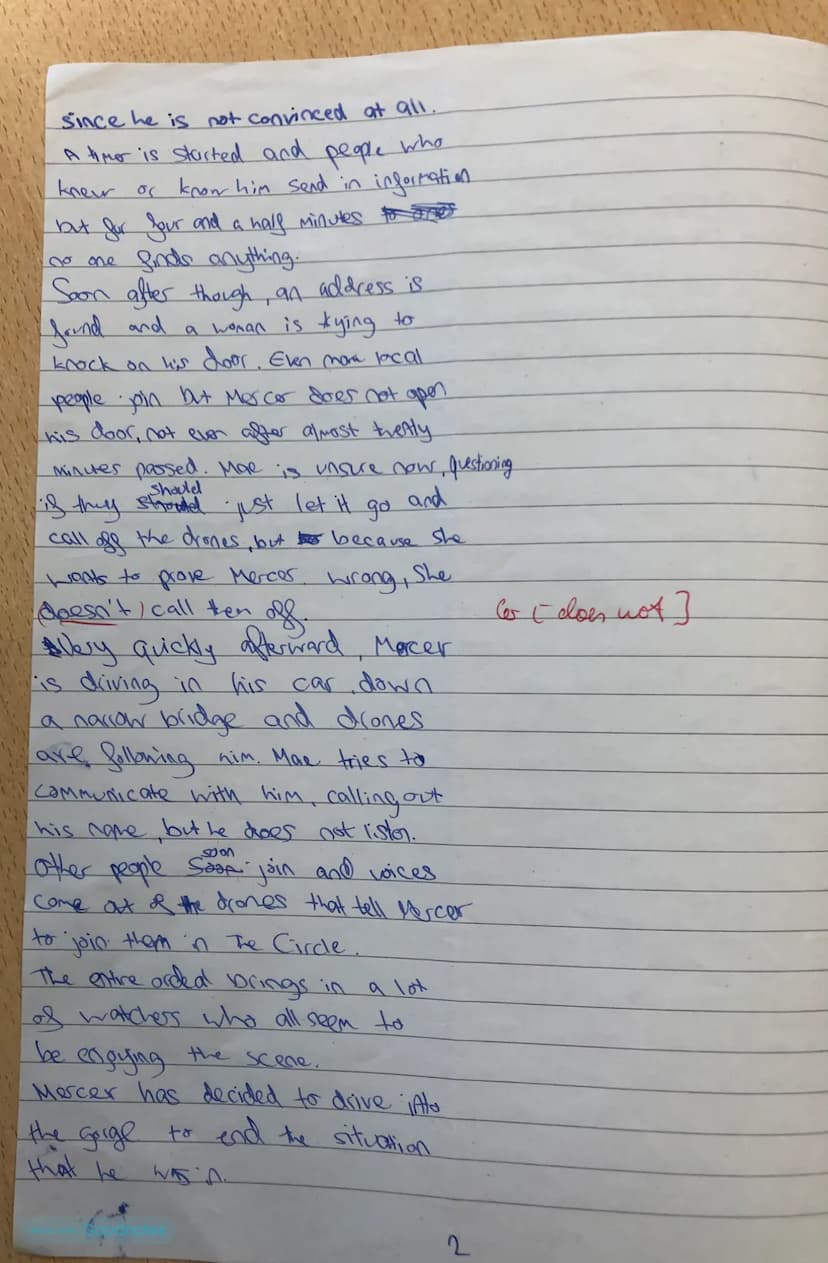 since he is not convinced at all.
A timer is started and people who
knew or know him send in information
but for four and a half minutes
no one finds anything.
Soon after though, an address is
found and a woman is trying to
knock on his door. Even more local
people join but Mercer does not open
his door, not even after almost twenty
minutes passed. Mae is unsure now, questioning
should
if they should just let it go and
call off the drones, but because she
wants to prove Mercer wrong, she
(doesn't) call them off. (or [does not]
Very quickly afterward, Mercer
is driving in his car down
a narrow bridge and drones
are following him. Mae tries to
communicate with him, calling out
his name, but he does not listen.
soon
Other people soon join and voices
come out of the drones that tell Mercer
to join them in The Circle.
The entire ordeal brings in a lot
of watchers who all seem to
be enjoying the scene.
Mercer has decided to drive into
the gorge to end the situation
that he was in.
2